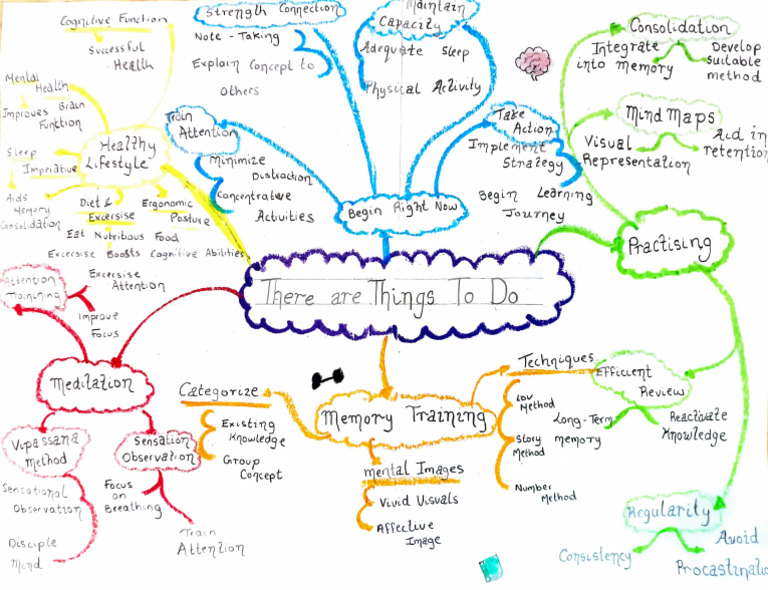 Cognitive Function
Successful
Health
Mental
Health
Improves Brain
Function
Sleep
Imperative
Aids
Memory
Consolidation
Healthy
Lifestyle
Diet &
Excersise
Eat Nutritious Food
Excersise Boosts Cognitive Abilities
Ergonomic
Posture
Strength Connection
Note - Taking
Explain Concept to
Others
Maintain
Capacity
Adequate Sleep
Physical Activity
Train
Attention
Minimize
Distraction
Concentrative
Activities
Take
Action
Implement
Strategy
Begin Learning
Journey
Begin Right Now
Consolidation
Integrate
into memory
Develop
Suitable
method
Mind Maps
Visual
Representation
Aid in
retention
Practising
There are Things To Do
Attention
Training
Excersise
Attention
Improve
Focus
Meditation
Vipassana
Method
Sensational
Observation
Disciple
Mind
Sensation
Observation
Focus
on
Breathing
Train
Attention
Categorize
Existing
Knowledge
Group
Concept
Memory Training
mental Images
Vivid Visuals
Affective
Image
Techniques
Method
Story
Method
Number
Method
Efficient
Review
Long-Term
memory
Knowledge
Regularity
Consistency
Avoid